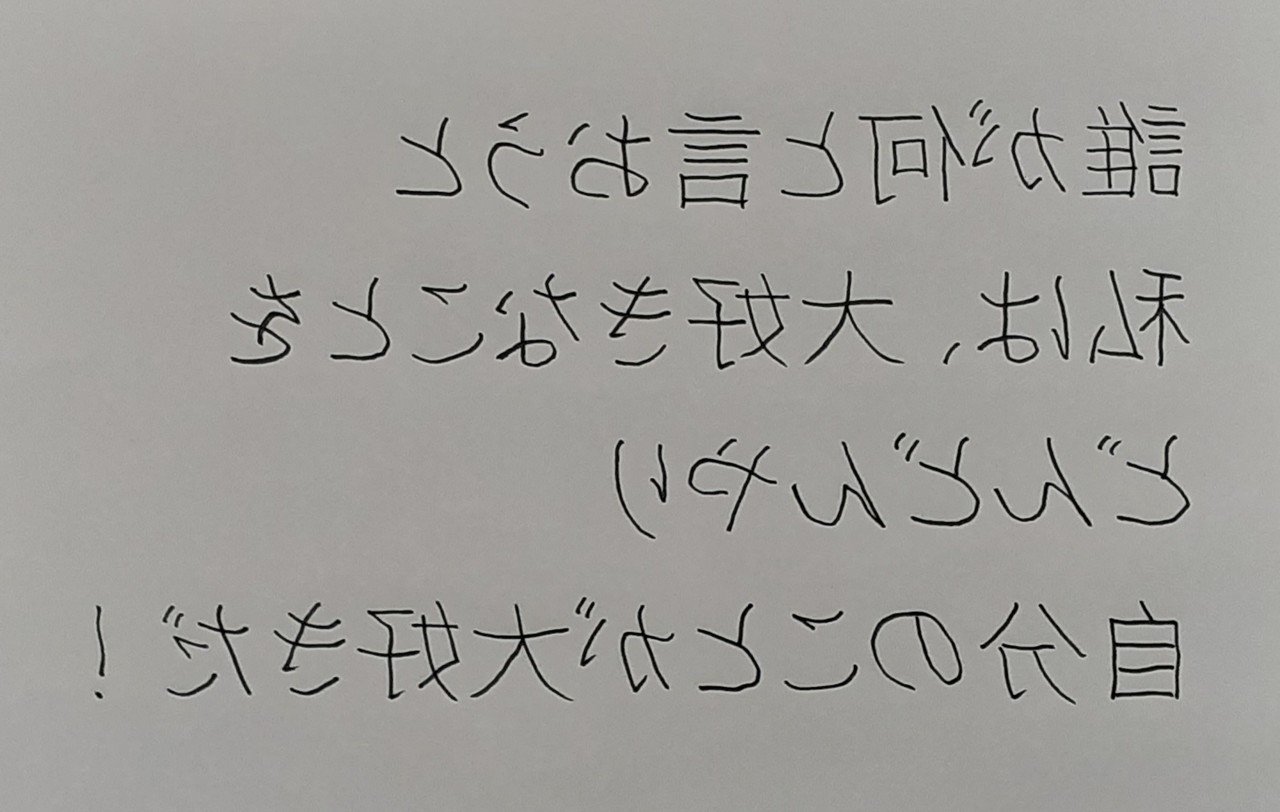 誰が何と言おうと
私は、大好きなことを
どんどんやり
自分のことが大好きだ!